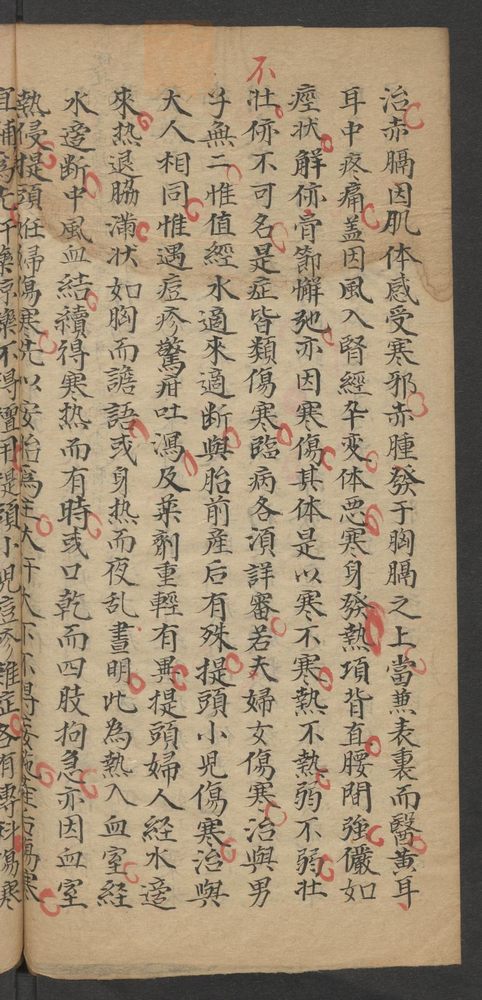 治赤膈因肌体感受寒邪赤腫發于胸膈之上當兼表裏而醫黄耳
耳中疼痛盖因風入腎經卒变体惡寒身發熱項背直腰間強儼如
痙状解㑊骨節懈弛亦因寒傷其体是以寒不寒熱不熱弱不弱壯
不
壮㑊不可名是症皆類傷寒臨病各湏詳審若夫婦女傷寒治與男
子無二惟值經水適來適断與胎前産后有殊提頭小児傷寒治與
大人相同惟遇痘疹驚疳吐瀉及藥劑重輕有異提頭婦人經水適
來热退脇滿状如胸而譫語或身热而夜乱晝明此為熱入血室経
水適断中風血結續得寒热而有時或口乾而四肢拘急亦因血室
熱侵提頭妊婦傷寒先以安胎為主大汗大下
小児痘疹雜症各有專科傷寒